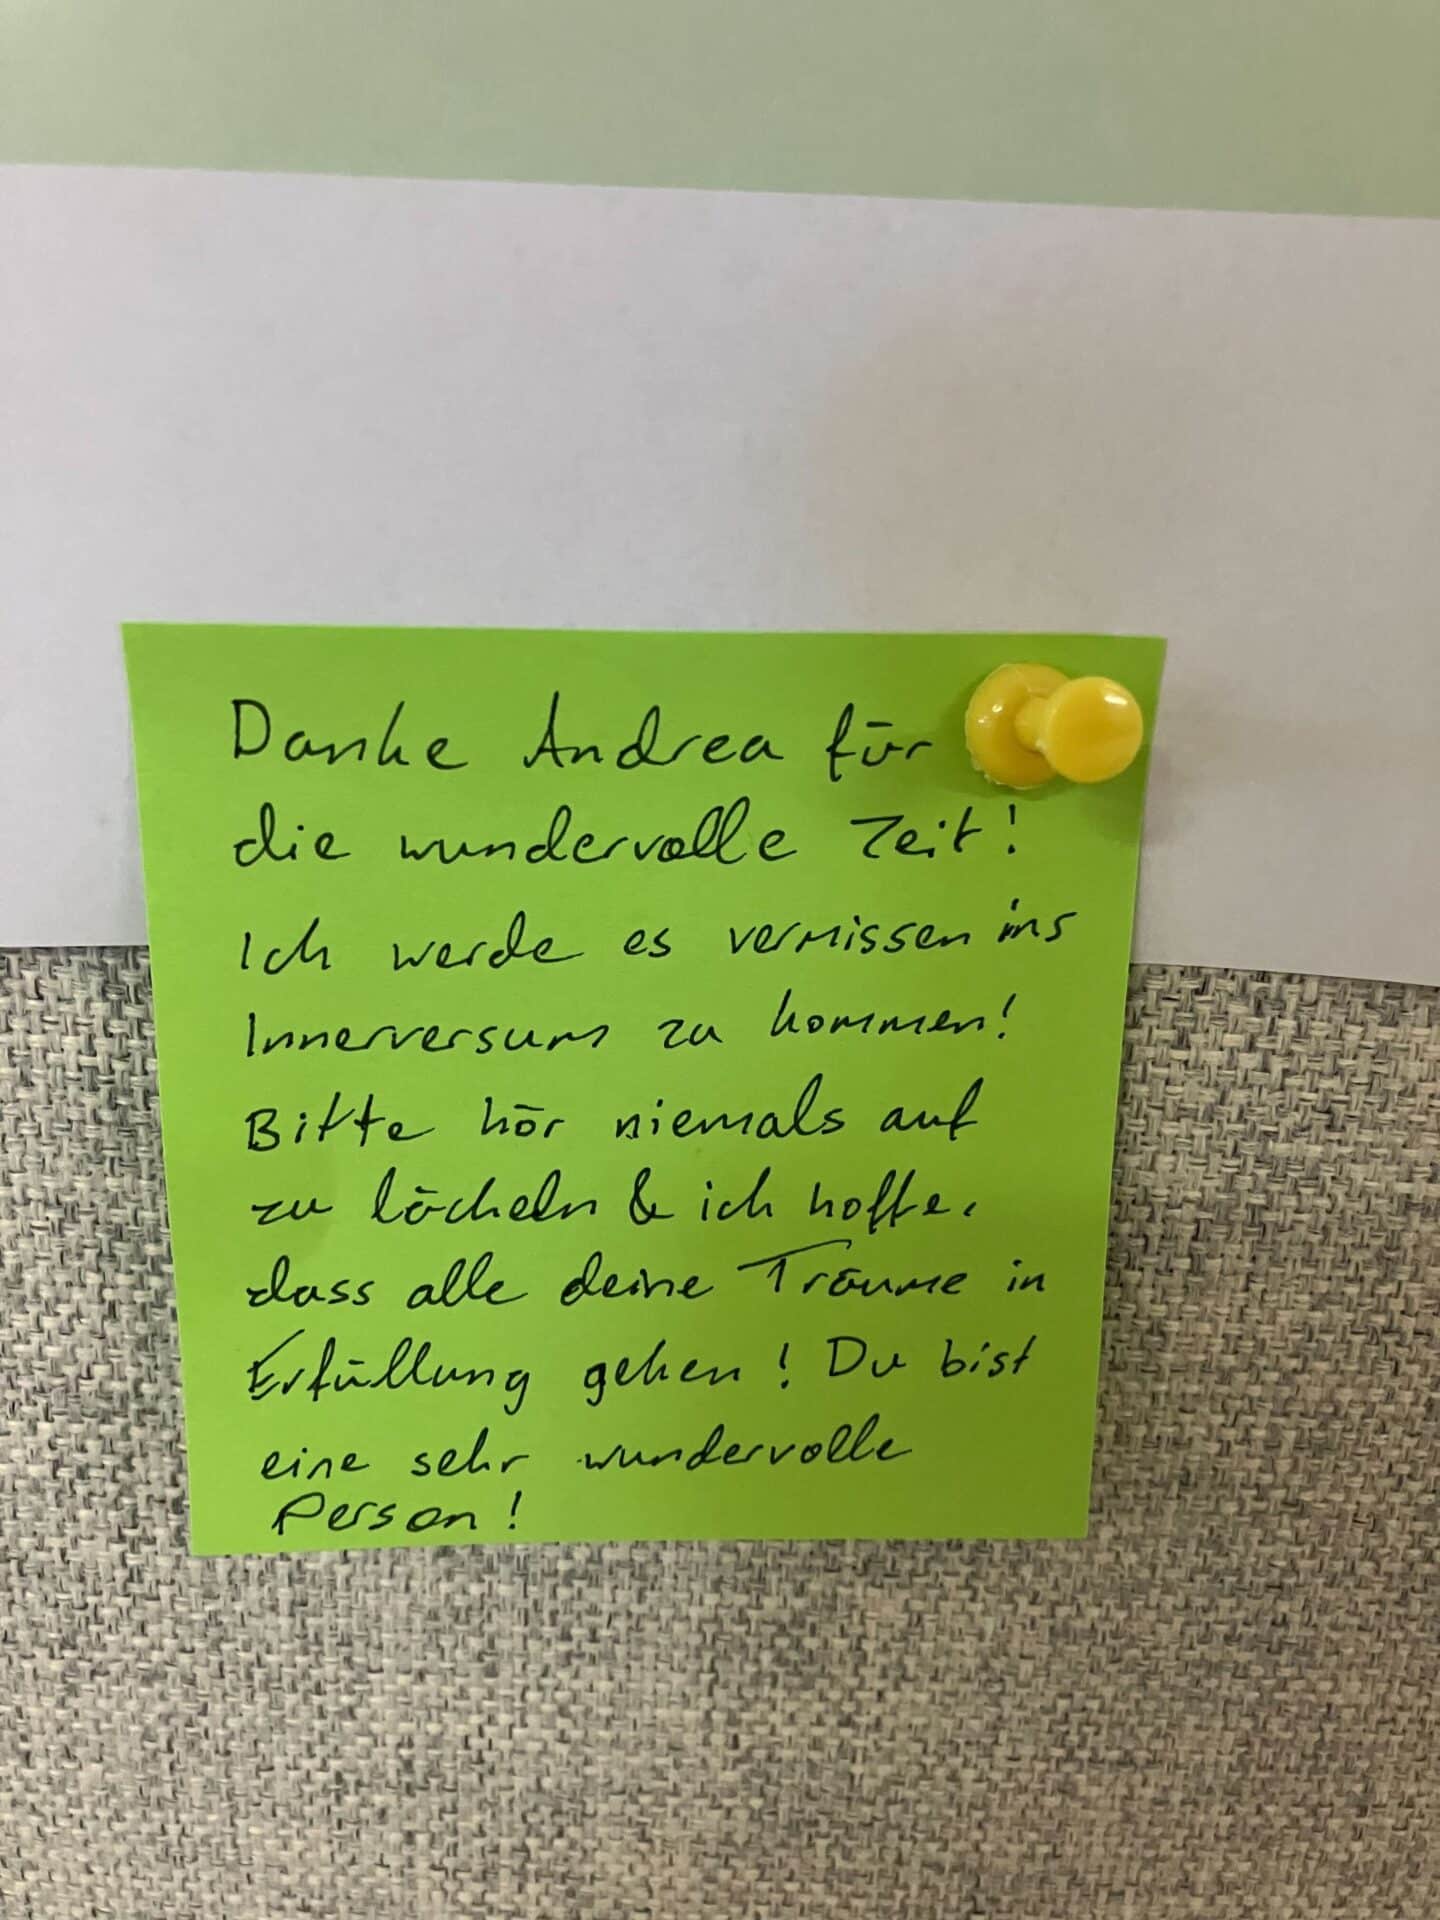 Danke Andrea für
die wundervolle Zeit!
Ich werde es vermissen ins
Innerversum zu kommen!
Bitte hör niemals auf
zu lächeln & ich hoffe,
dass alle deine Träume in
Erfüllung gehen! Du bist
eine sehr wundervolle
Person!